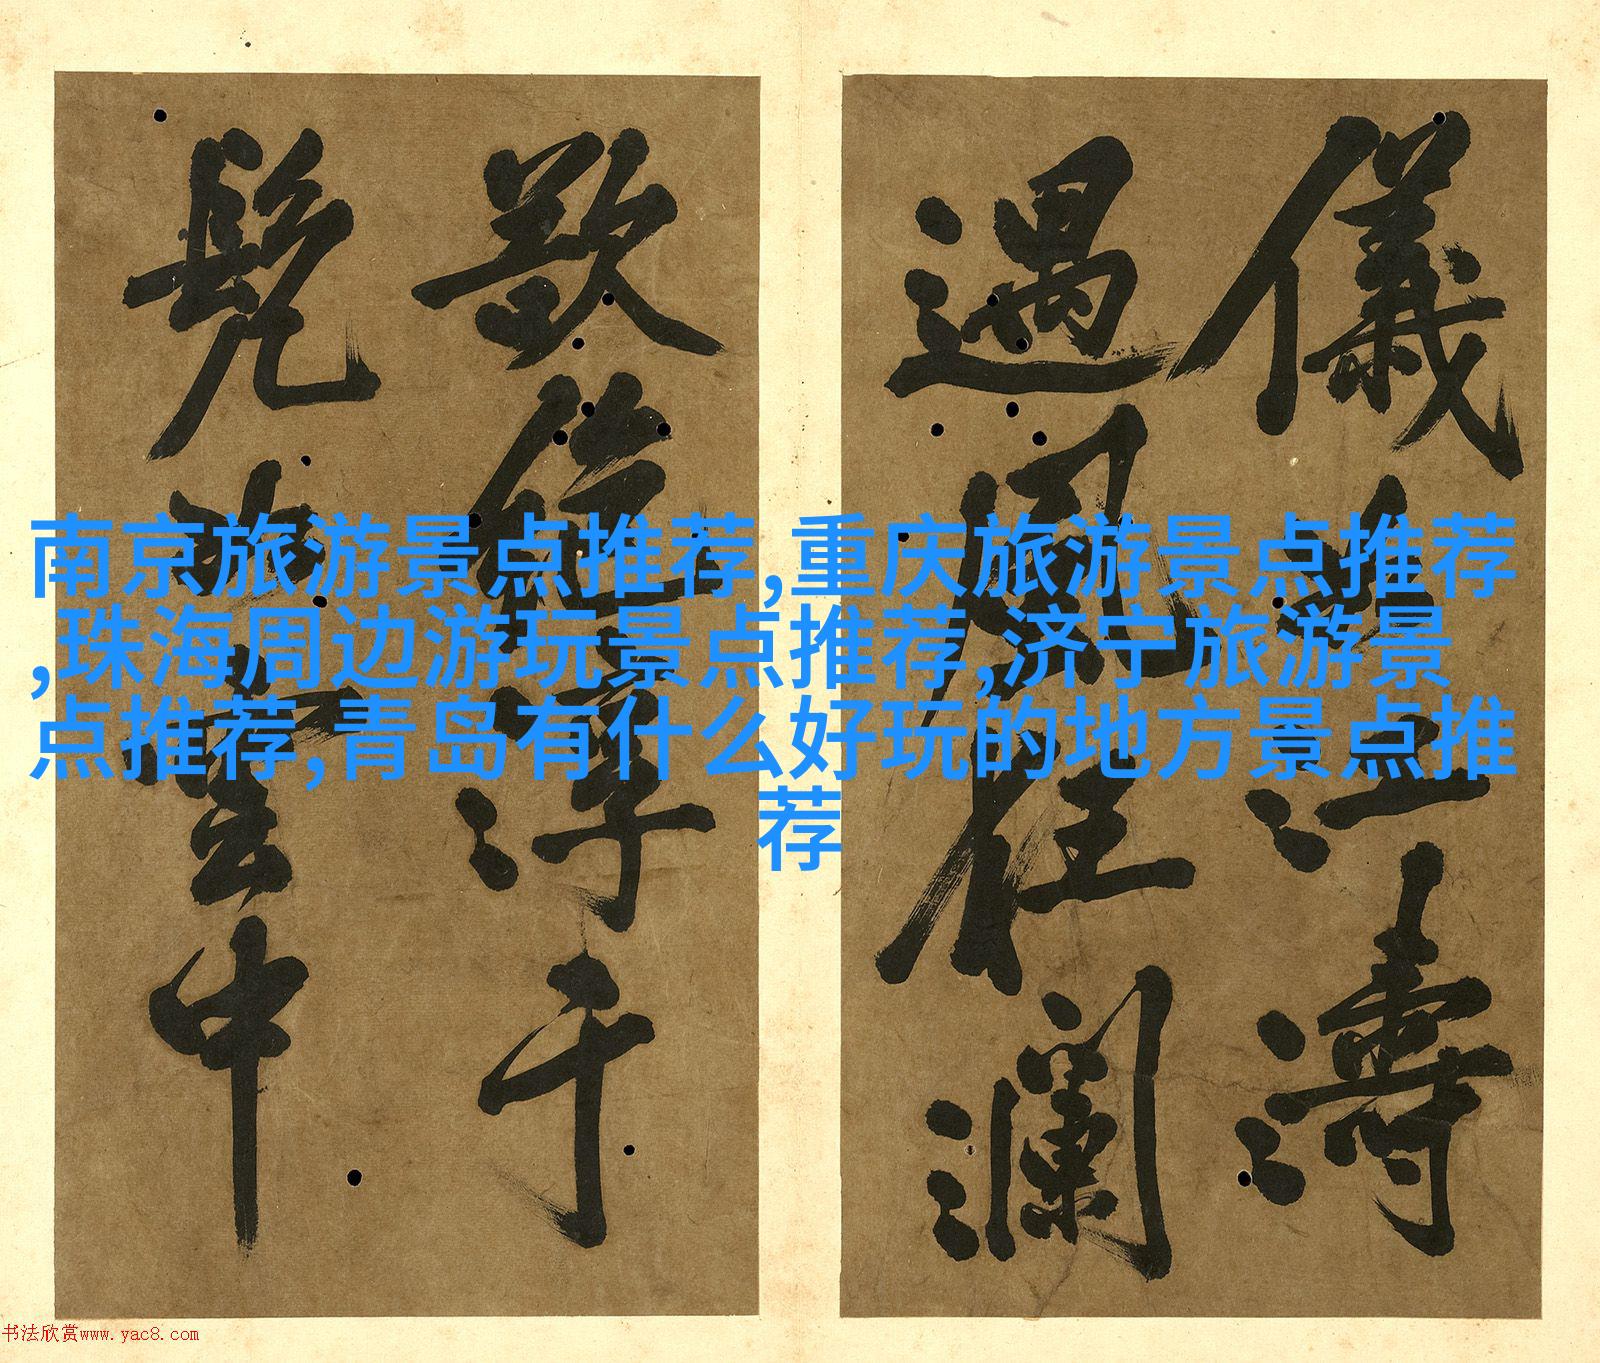 儀江濤
遇風狂瀾
浮于
雲中
南京旅游景点推荐,重庆旅游景点推荐
,珠海周边游玩景点推荐,济宁旅游景
点推荐,青岛有什么好玩的地方景点推
荐
书法欣赏www.yac8.com